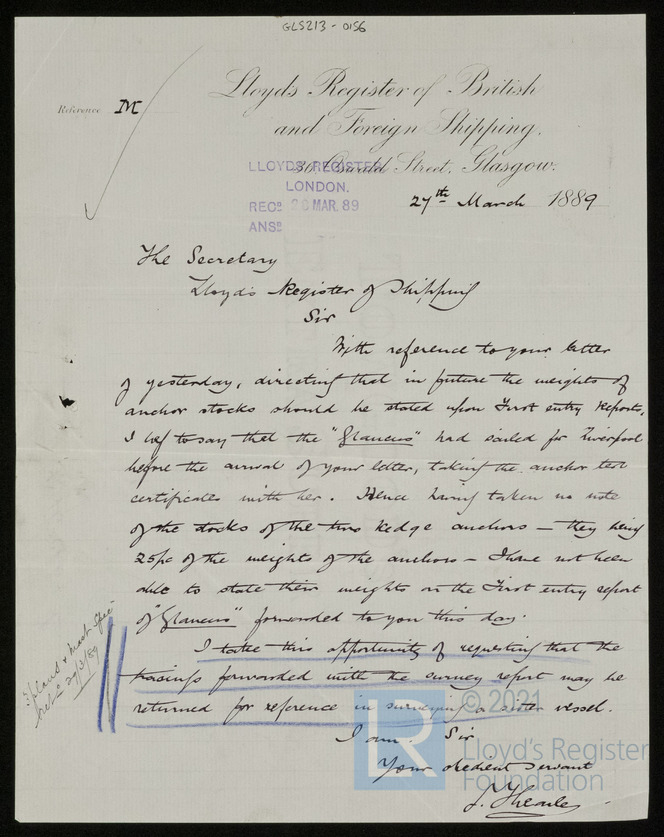 GLS213 - 0156
Lloyds Register of British
and Foreign Shipping.
Reference M
36 Oswald Street, Glasgow.
LLOYDS REGISTER
LONDON.
27th March 1889
RECD 28 MAR. 89
ANSD
The Secretary
Lloyd's Register of Shipping
Sir
With reference to your letter
of yesterday, directing that in future the weights of
anchor stocks should be stated upon First entry Reports,
I beg to say that the "Glaucus" had sailed for Liverpool
before the arrival of your letter, taking the anchor test
certificates with her. Hence having taken no note
of the stocks of the two kedge anchors — they being
25pc of the weights of the anchors — I have not been
able to state their weights on the First entry report
of "Glaucus" forwarded to you this day.
I take this opportunity of requesting that the
tracings forwarded with the survey report may be
returned for reference in surveying a sister vessel.
I am. Sir
Your obedient servant
29/3/89
© 2021
LR
Lloyd's Register
Foundation